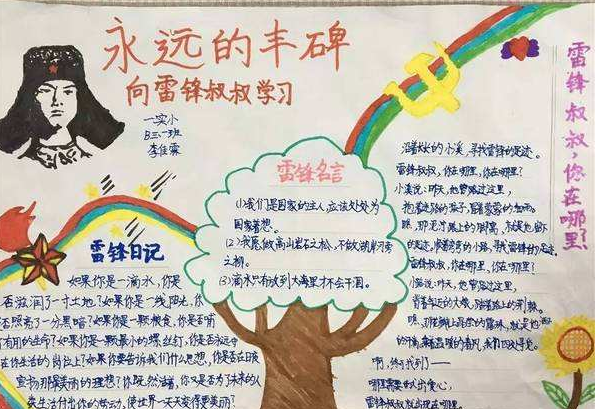 永远的丰碑
向雷锋叔叔学习
一实小
三一班
李佳霖
雷锋日记
如果你是一滴水,你是
否滋润了一寸土地?如果你是一线阳光,你
否照亮了一分黑暗?如果你是一颗粮食,你是否哺
有用的生命?如果你是一颗最小的螺丝钉,你是否永远守
在你生活的岗位上?如果你要告诉我们什么思想,你是否在日夜
宣扬那最美丽的理想?你既然活着,你又是否为了未来的人
类生活付出你的劳动,使世界一天天变得更美丽?
雷锋名言
(1)我们是国家的主人,应该处处为
国家着想。
(2)我愿做高山岩石之松,不做湖岸河旁
之柳。
(3)滴水只有放到大海里才不会干涸。
雷锋叔叔,您在哪里
沿着长长的小溪,寻找雷锋的足迹。
雷锋叔叔,你在哪里,你在哪里?
小溪说:昨天,他曾路过这里,
抱着迷路的孩子,冒着蒙蒙的细雨。
瞧,那泥泞路上的脚窝,就是他留下
的足迹。顺着弯弯的小路,寻找雷锋的足迹。
雷锋叔叔,你在哪里,你在哪里?
小路说:昨天,他曾路过这里,
背着年迈的大娘,踏着路上的荆棘。
瞧,那花瓣上晶莹的露珠,就是他洒
的滴
温暖的春风,我们四处寻觅。
啊,终于找到了——
哪里需要献出爱心,
雷锋叔叔就出现在哪里。